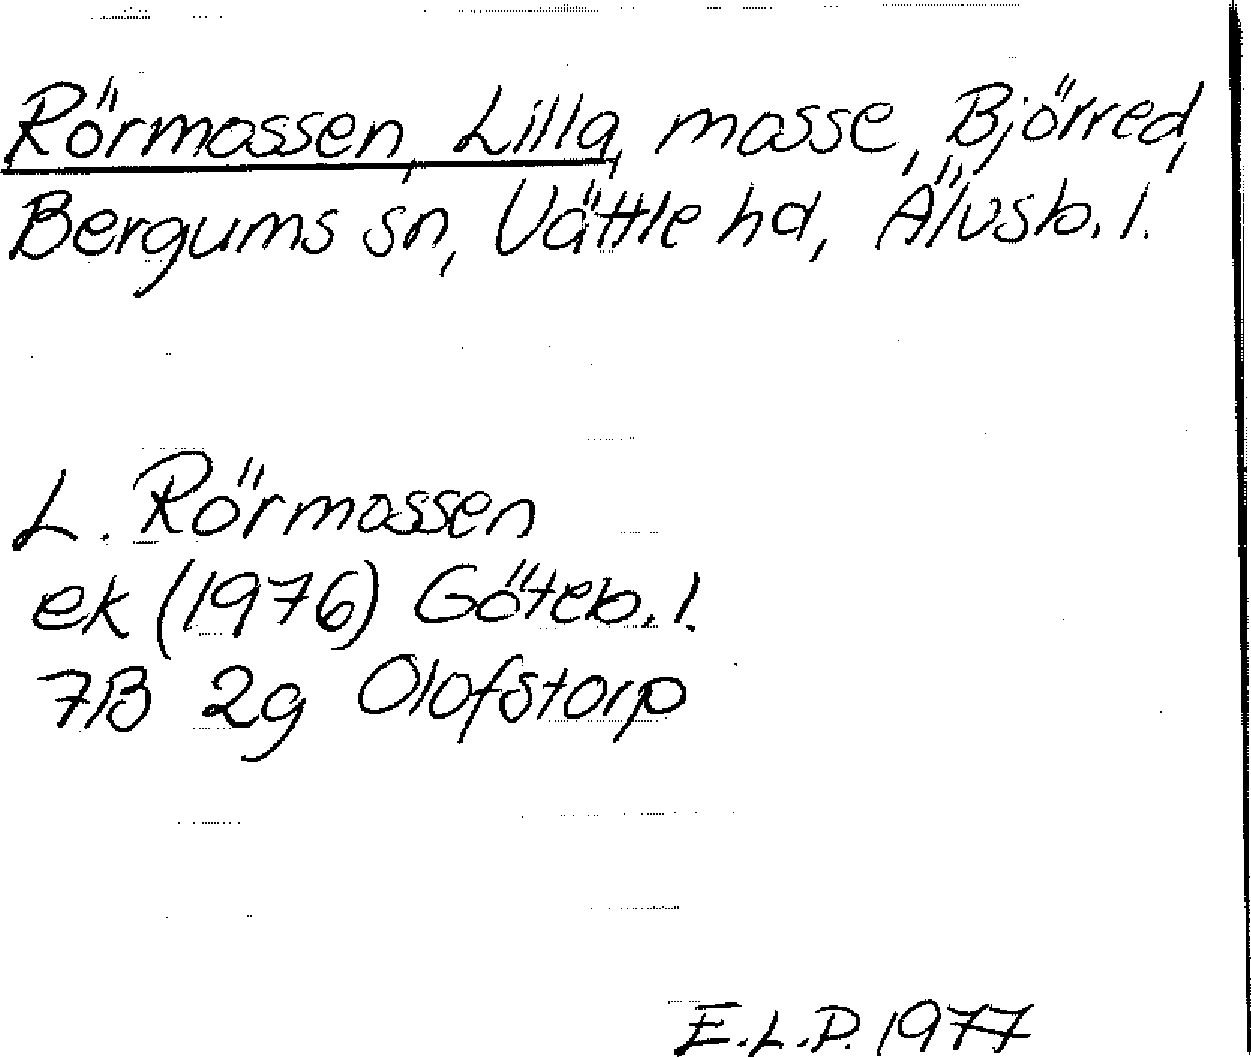 Rörmossen, Lilla, mosse, Björred,
Bergums sn, Vättle hd, Älvsb. l.
L. Rörmossen
ek (1976) Göteb. l.
7B 2g Olofstorp
E.L.P. 1977